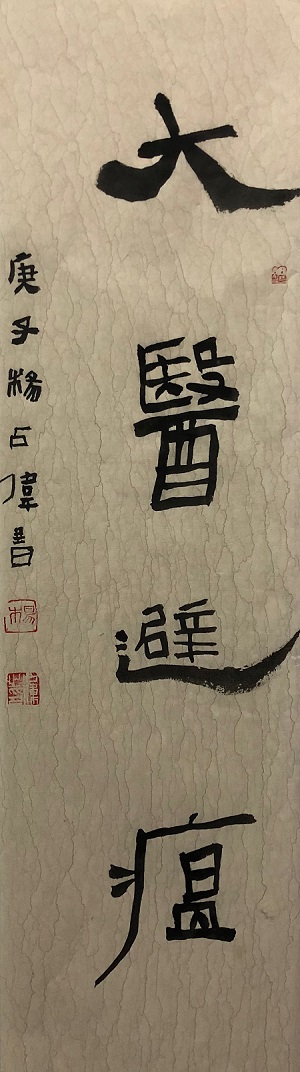 大醫避瘟
庚子楊占偉書